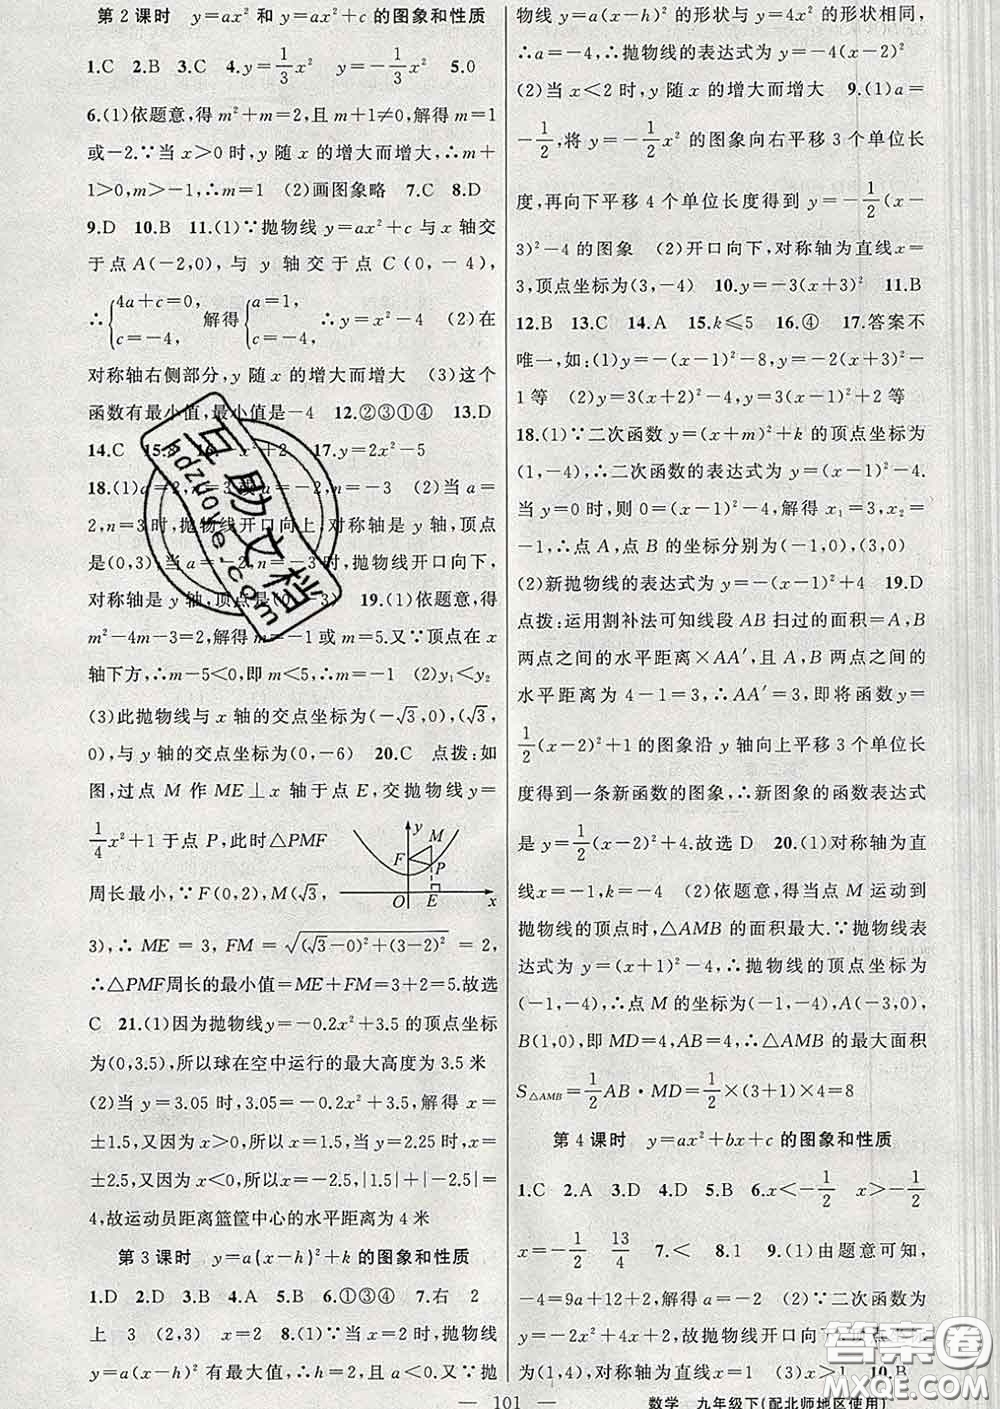 第2课时 y=ax²和y=ax²+c的图象和性质
1.C 2.B 3.C 4.y=1/3x² y=-1/3x² 5.0
6.(1)依题意,得m²+m=2,且m+1≠0,解得m=1
或-2.∵当x>0时,y随x的增大而增大,∴m+
1>0,m>-1,∴m=1 (2)画图象略 7.C 8.D
9.D 10.B 11.(1)∵抛物线y=ax²+c与x轴交
于点A(-2,0),与y轴交于点C(0,-4),
∴{4a+c=0, c=-4, 解得{a=1, c=-4, ∴y=x²-4 (2)在
对称轴右侧部分,y随x的增大而增大 (3)这个
函数有最小值,最小值是-4 12.②③①④ 13.D
14.C 17.y=2x²-5
18.(1)a=2,n=3或a=-2,n=-3 (2)当a=
2,n=3时,抛物线开口向上,对称轴是y轴,顶点
是(0,3),当a=-2,n=-3时,抛物线开口向下,
对称轴是y轴,顶点是(0,-3) 19.(1)依题意,得
m²-4m-3=2,解得m=-1或m=5.又∵顶点在x
轴下方,∴m-5<0,即m<5,∴m=-1 (2)y₁<y₂
(3)此抛物线与x轴的交点坐标为(-√3,0),(√3,
0),与y轴的交点坐标为(0,-6) 20.C 点拨:如
图,过点M作ME⊥x轴于点E,交抛物线y=
1/4x²+1于点P,此时△PMF
周长最小,∵F(0,2),M(√3,
y
F
M
P
O
E
x
3),∴ME=3,FM=√((√3-0)²+(3-2)²)=2,
∴△PMF周长的最小值=ME+FM=3+2=5.故选
C 21.(1)因为抛物线y=-0.2x²+3.5的顶点坐标
为(0,3.5),所以球在空中运行的最大高度为3.5米
(2)当y=3.05时,3.05=-0.2x²+3.5,解得x=
±1.5,又因为x>0,所以x=1.5,当y=2.25时,x=
±2.5,又因为x<0,所以x=-2.5,|1.5|+|-2.5|=
4,故运动员距离篮筐中心的水平距离为4米
第3课时 y=a(x-h)²+k的图象和性质
1.D 2.D 3.B 4.A 5.B 6.①③④ 7.右 2
上 3 (2,3) x=2 8.(1)∵当x=2时,抛物线
y=a(x-h)²有最大值,∴h=2,且a<0.又∵抛
物线y=a(x-h)²的形状与y=4x²的形状相同,
∴a=-4,∴抛物线的表达式为y=-4(x-2)²
(2)当x<2时,y随x的增大而增大 9.(1)a=
-1/2,将y=-1/2x²的图象向右平移3个单位长
度,再向下平移4个单位长度得到y=-1/2(x-
3)²-4的图象 (2)开口向下,对称轴为直线x=
3,顶点坐标为(3,-4) 10.y=-3(x+3)² 11.B
12.B 13.C 14.A 15.k≤5 16.④ 17.答案不
唯一,如:(1)y=-(x-1)²-8,y=-2(x+3)²-
1等 (2)y=3(x+2)²-4,y=3(x-1)²+2等
18.(1)∵二次函数y=(x+m)²+k的顶点坐标为
(1,-4),∴二次函数的表达式为y=(x-1)²-4.
当y=0时,则0=(x-1)²-4,解得x₁=3,x₂=
-1,∴点A,点B的坐标分别为(-1,0),(3,0)
(2)新抛物线的表达式为y=-(x-1)²+4 19.D
点拨:运用割补法可知线段AB扫过的面积=A,B
两点之间的水平距离×AA′,且A,B两点之间的
水平距离为4-1=3,∴AA′=3,即将函数y=
1/2(x-2)²+1的图象沿y轴向上平移3个单位长
度得到一条新函数的图象,∴新图象的函数表达式
是y=1/2(x-2)²+4.故选D 20.(1)对称轴为直
线x=-1,k=-4 (2)依题意,得当点M运动到
抛物线的顶点时,△AMB的面积最大.∵抛物线表
达式为y=(x+1)²-4,∴抛物线的顶点坐标为
(-1,-4),∴点M的坐标为(-1,-4),A(-3,0),
B(1,0),即MD=4,AB=4,∴△AMB的最大面积
S△AMB=1/2AB·MD=1/2×(3+1)×4=8
第4课时 y=ax²+bx+c的图象和性质
1.C 2.A 3.D 4.D 5.B 6.x<-1/2 x>-1/2
x=-1/2 13/4 7.< 8.1 9.(1)由题意可知,
-4=9a+12+2,解得a=-2 (2)∵二次函数为
y=-2x²+4x+2,故抛物线开口向下,顶点坐标
为(1,4),对称轴为直线x=1 (3)x>1 10.B
— 101 — 数学 九年级下(配北师地区使用)
互助文档
hdzuoye.com
答案卷
MXQE.COM